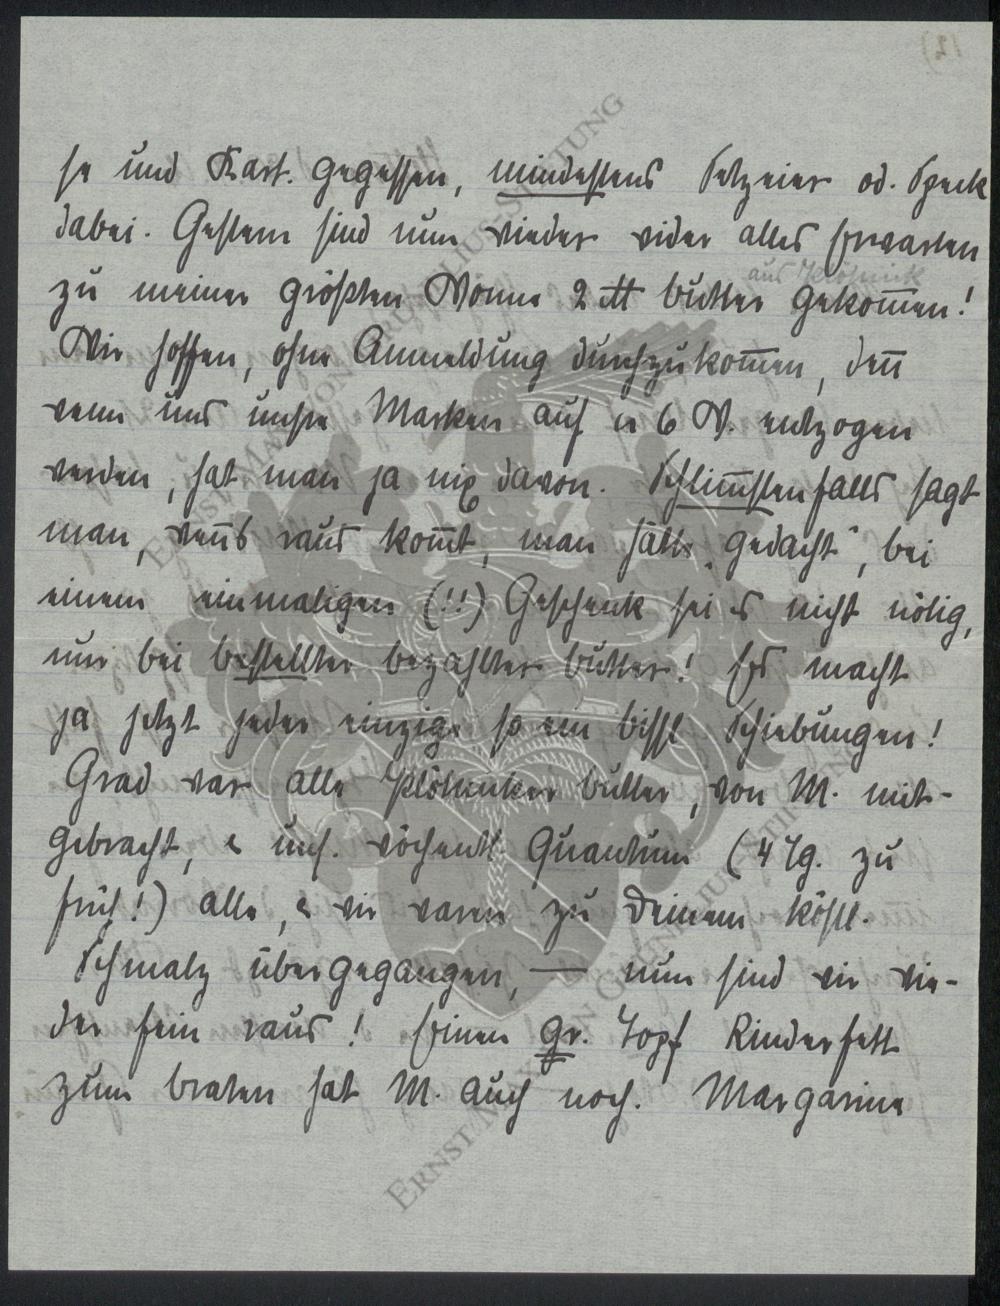 se und Kart. gegessen, mindestens Setzeier od. Speck
dabei. Gestern sind nun wieder wider alles Erwarten
aus Klötnick
zu meiner größten Wonne 2 ℔ Butter gekom̅en!
Wir hoffen, ohne Anmeldung durchzukom̅en, den̅
wenn uns unsre Marken auf 6 W. entzogen
werden, hat man ja nix davon. Schlim̅stenfalls sagt
man, wen̅s raus kom̅t, man hätte „gedacht“, bei
einem einmaligen (!!) Geschenk sei es nicht nötig,
nur bei bestellter bezahlter Butter! Es macht
ja jetzt jeder einzige so ein bissl Schiebungen!
Grad war alle Klötnicker Butter, von M. mit-
gebracht, & uns. wöchentl. Quantum (4 Tg. zu
früh!) alle, & wir waren zu Deinem köstl.
Schmalz übergegangen, — nun sind wir wie-
der fein raus! Einen gr. Topf Rinderfett
zum braten hat M. auch noch. Margarine
ERNST-MAX VON GRUNELIUS-STIFTUNG
ERNST MAX VON GRUNELIUS-STIFTUNG